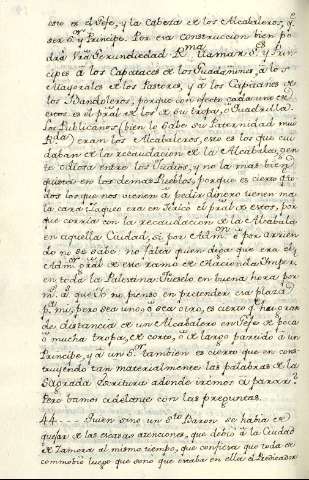 esto es el Gefe, y la Cabeza de los Alcabaleros, q.e
ser S.or y Principe. Por esa construccion bien po
drà Vrã Gerundiedad R.ma llamar S.es y Prin-
cipes à los Capataces de los Guadañines, à los
Mayorales de los Pastores, y à los Capitanes de
los Vandoleros, porque con efecto cada uno de
estos es el pral de los de su tropa, ò Quadrilla
los Publicanos (bien lo sabe su Paternidad mui
R.da) eran los Alcabaleros, esto es los que cui
daban de la recaudacion de la Alcabala, gen
te odiosa entre los Judios, y no la mas bien
quista en los demas Pueblos, porque es cierto q. to
dos los que nos vienen à pedir dinero tienen ma
la cara. Zaqueo era en Jericò el pral de estos, por
que corria con la recaudacion de la Alcabala
en aquella Ciudad, si por Adm.on ò por arrien
do no se sabe: no falta quien diga que era el
Adm.or gral de ese ramo de Hacienda Imper.l
en toda la Palestina. Fueselo en buena hora por
mi, que yo no pienso en pretender esa plaza
p.a mi, pero sea uno, ò sea otro, es cierto q. hai gran
de distancia de un Alcabalero en Gefe de poca
ò mucha tropa, de corto, ò de largo partido à un
Principe, y à un S.or tambien es cierto que en cons-
truyendo tan materialmente las palabras de la
Sagrada Escritura adonde iremos à parar?
Pero bamos adelante con las preguntas.
44.... Quien sino un S.to Varon se habia de
quejar de las escasas atenciones, que debiò à la Ciudad
de Zamora al mismo tiempo, que confiesa que toda se
commobiò luego que supo que estaba en ella el Predicador